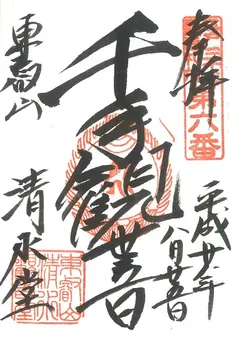 奉拝
第六番
平成廿一年
八月廿五日
千手観世音
東叡山
清水堂
東叡山
清水
観音堂